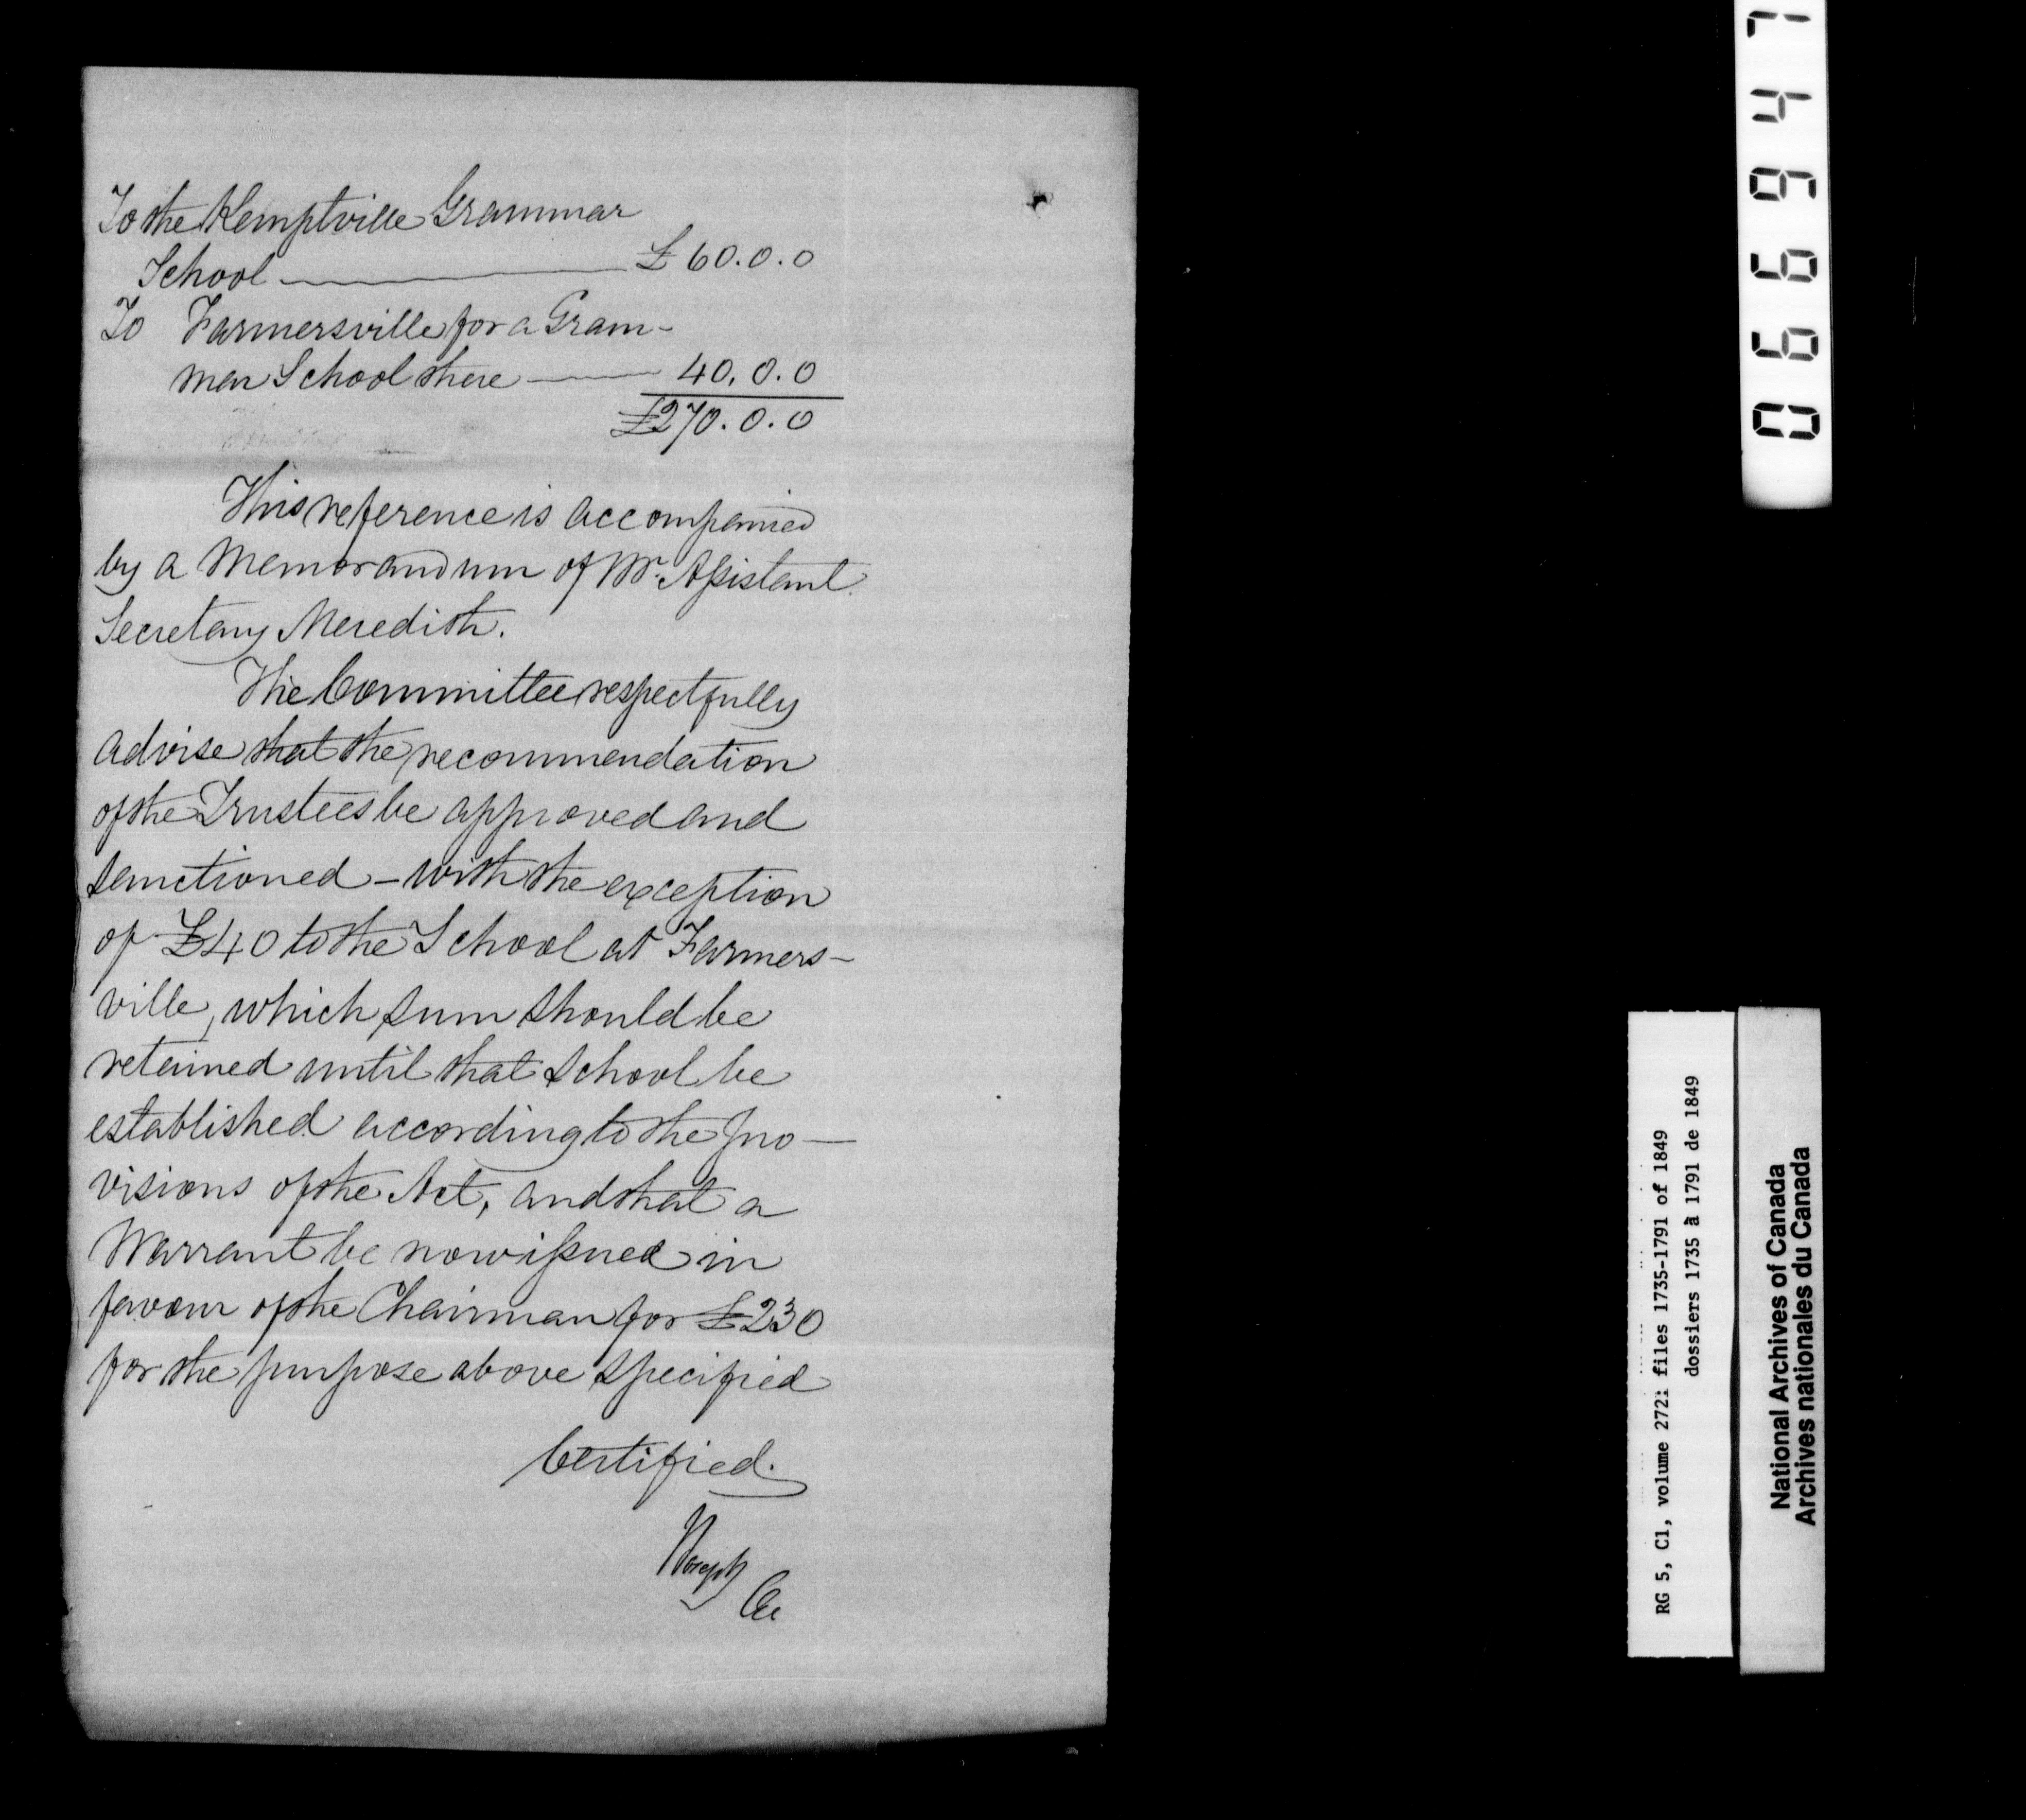 To the Kemptville Grammar
School £60.0.0
To Farmersville for a Gram-
mar School there 40.0.0
£270.0.0
This reference is accompanied
by a Memorandum of Mr. Assistant
Secretary Meredith.
The Committee respectfully
advise that the recommendation
of the Trustees be approved and
sanctioned – with the exception
of £40 to the School at Farmers-
ville, which sum should be
retained until that School be
established according to the pro-
visions of the Act, and that a
Warrant be now issued in
favour of the Chairman for £230
for the purpose above specified
Certified.
Joseph
066947
RG 5, C1, volume 272: files 1735-1791 of 1849
dossiers 1735 à 1791 de 1849
National Archives of Canada
Archives nationales du Canada